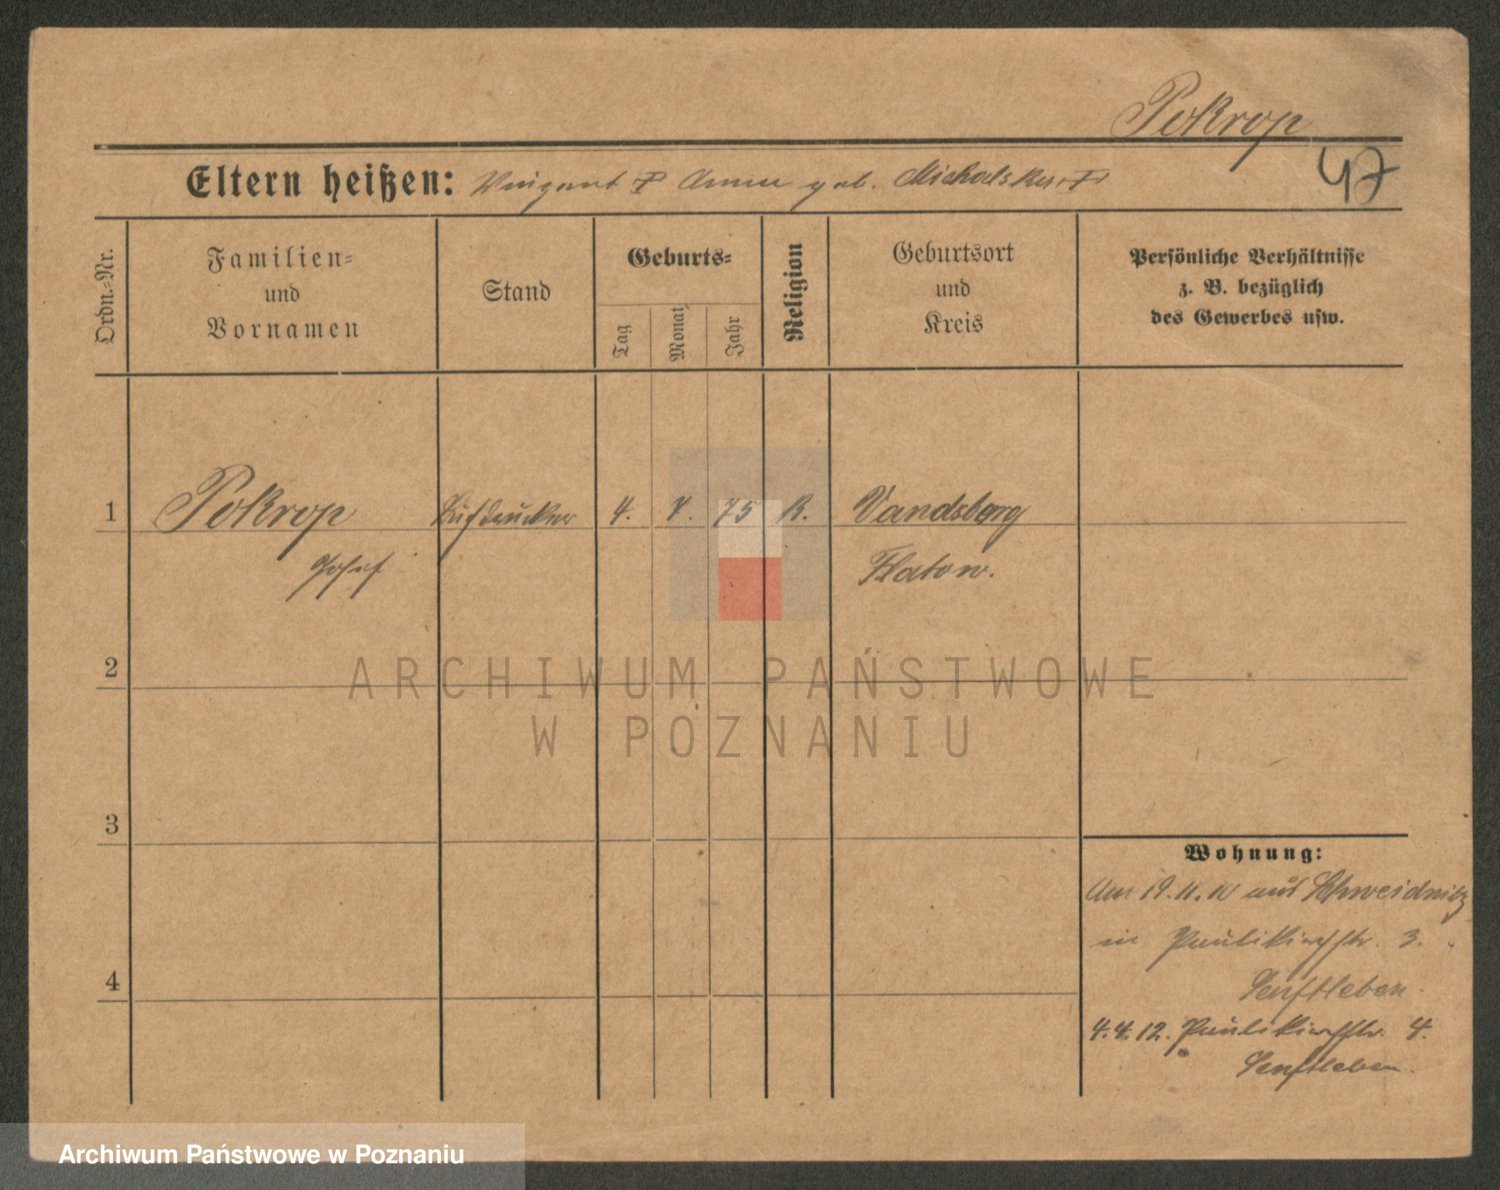 Pokrop
47
Eltern heißen: Anna geb. Michalska
Ordn.=Nr.
Familien=
und
Vornamen
Stand
Geburts=
Tag
Monat
Jahr
Religion
Geburtsort
und
Kreis
Persönliche Verhältnisse
z. B. bezüglich
des Gewerbes usw.
1 Pokrop 4. 4. 75 K. Vandsburg
Josef Flatow.
2
ARCHIWUM PAŃSTWOWE
W POZNANIU
3
4
Wohnung:
Am 19.11.10 aus Schweidnitz
in Paulikirchstr. 3.
Senftleben.
4.4.12. Paulikirchstr. 4.
Senftleben.
Archiwum Państwowe w Poznaniu